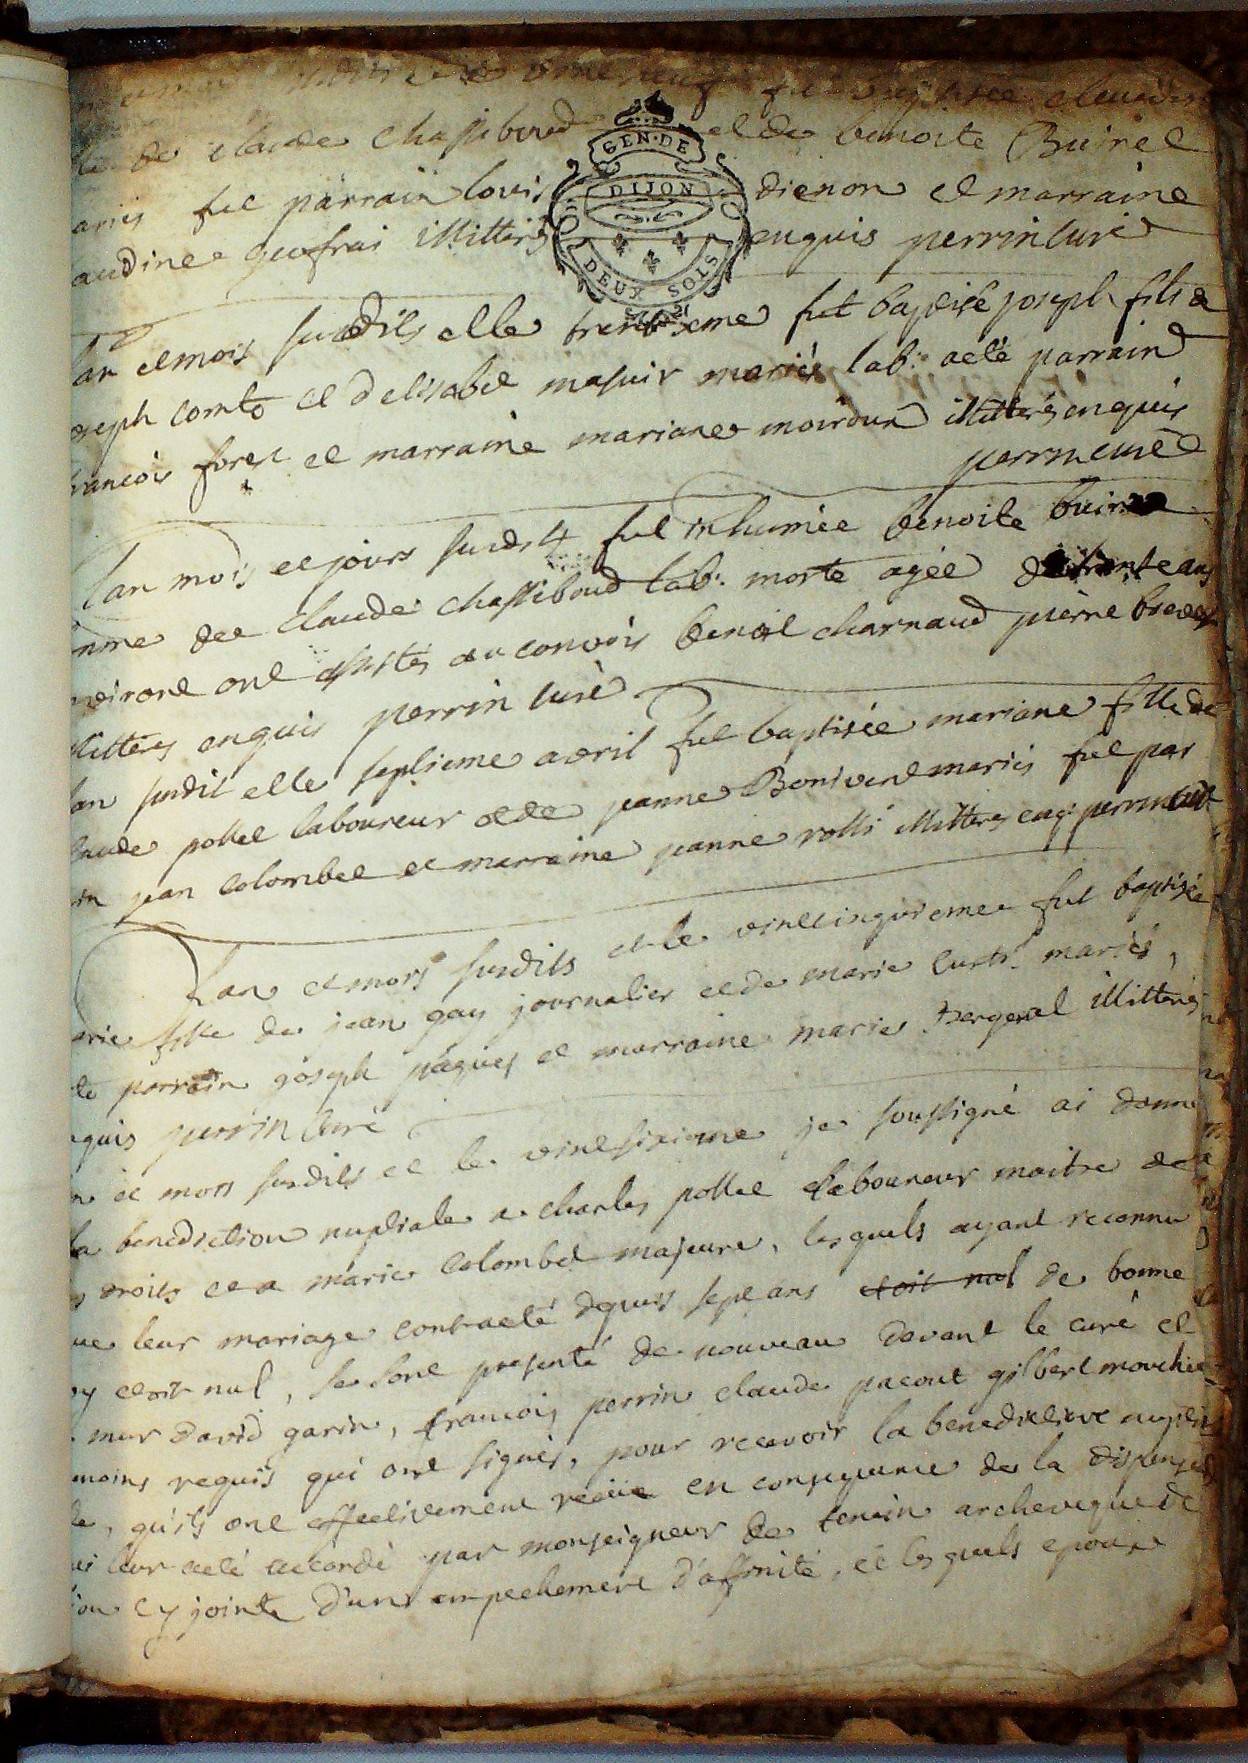 fut baptisée claudine
de claude chassiboud et de benoite Buirel
mariés fut parrain louis dienon et marraine
audine geofrai illitterés enquis perrin curé
GEN·DE
DIJON
DEUX SOLS
lan et mois susdits et le trentieme fut baptisé joseph fils de
oseph comto et delisabet masuir mariés lab: a eté parrain
francois forest et marraine mariane moiroud illitterés enquis
perrin curé
lan mois et jours susdits fut inhumée benoite buirel
emme de claude chassiboud lab: morte agée de trente ans
nviront ont assistés au convois benoit charnaud pierre
illitterés enquis perrin curé
lan susdit et le septieme avril fut baptisée mariane fille de
laude pollet laboureur et de jeanne Bonivent mariés fut par
in jean colombet et marraine jeanne rolli illitterés enq: perrin curé
Lan et mois susdits et le vintcinquieme fut baptisée
arie fille de jean gay journalier et de marie mariés,
té parrain joseph paques et marraine marie Bergeral illitterés
nquis perrin curé
n et mois susdits et le vintsixieme je soussigné ai donné
la benediction nuptiale a charles pollet laboureur maitre de
s droits et a marie Colombet majeure, lesquels ayant reconnu
ue leur mariage contracté depuis sept ans etoit nul de bonne
oy etoit nul, se sont presenté de nouveau davant le curé et
mur david garin, francois perrin claude pacout gilbert mouchie
moins requis qui ont signés, pour recevoir la benediction nuptia
le, qu'ils ont effectivement reçüe en consequence de la dispense
ui leur a eté accordé par monseigneur de tencin archeveque de
ion cy jointe d'un empechement d'affinité, et lesquels epoux